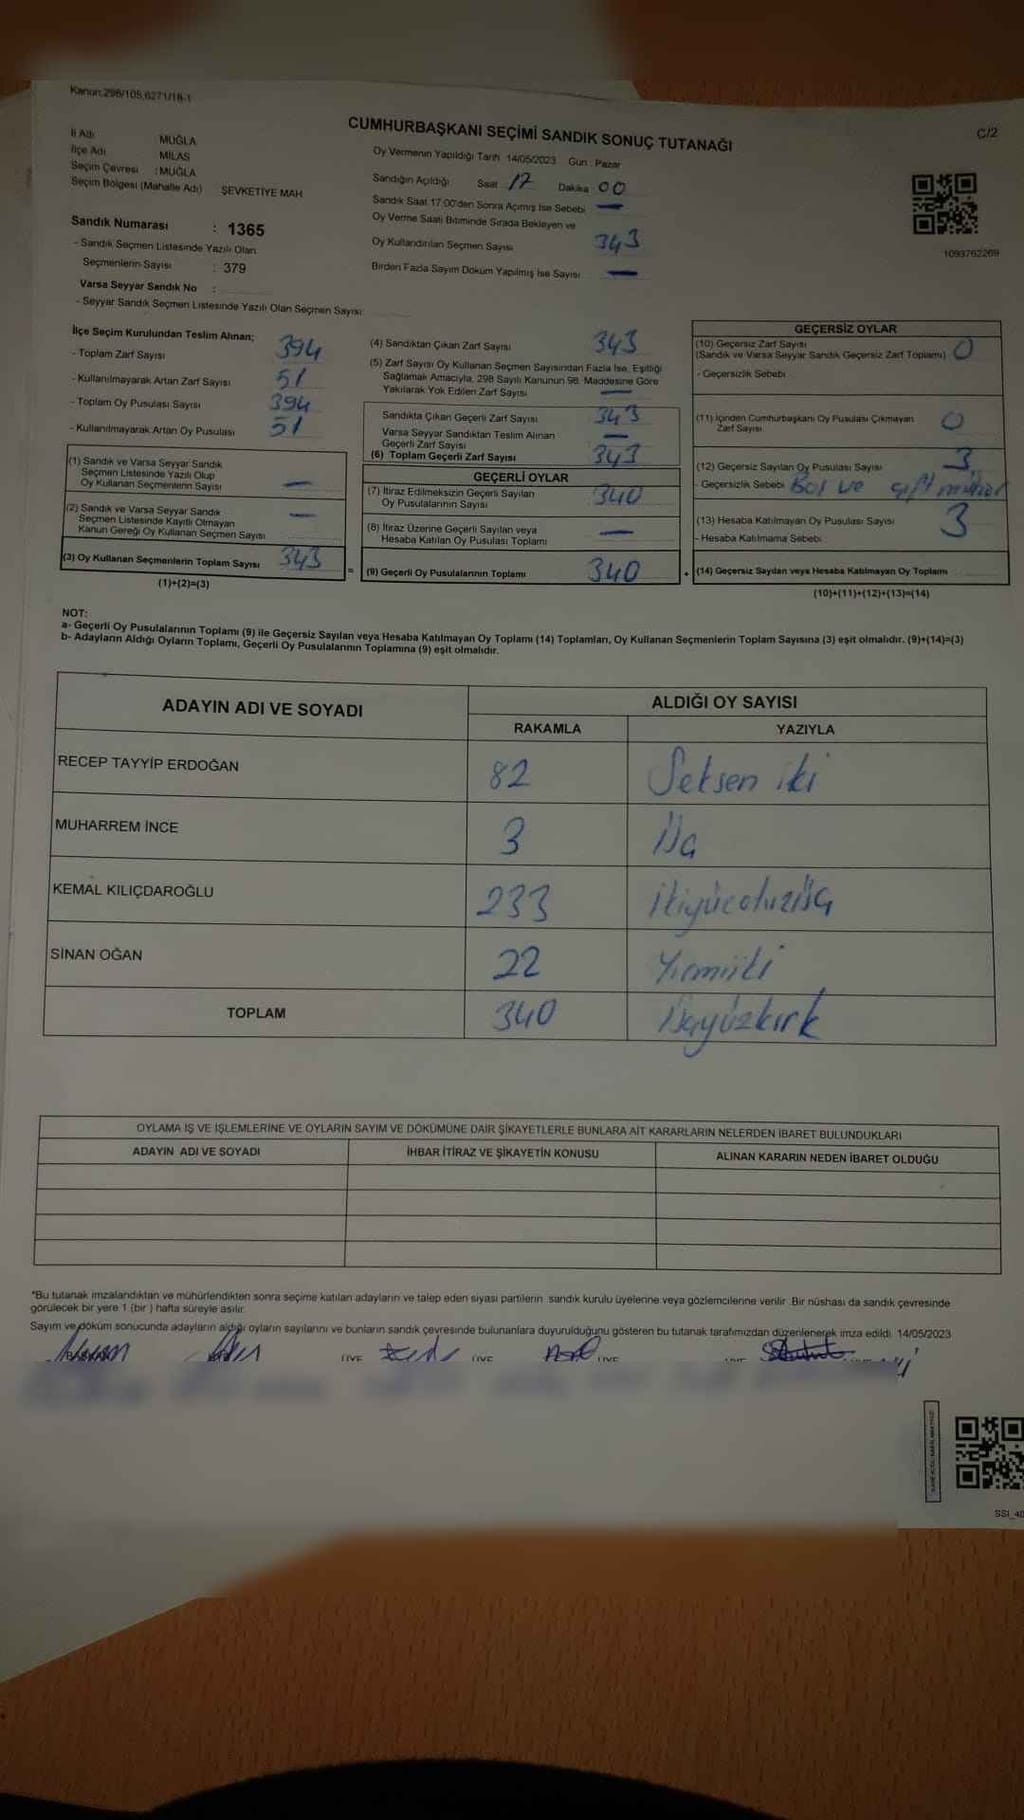 Kanun:298/105,6271/18-1
C/2
CUMHURBAŞKANI SEÇİMİ SANDIK SONUÇ TUTANAĞI
İl Adı MUĞLA
İlçe Adı MİLAS
Seçim Çevresi : MUĞLA
Seçim Bölgesi (Mahalle Adı) ŞEVKETİYE MAH
Sandık Numarası : 1365
- Sandık Seçmen Listesinde Yazılı Olan
Seçmenlerin Sayısı : 379
Varsa Seyyar Sandık No :
- Seyyar Sandık Seçmen Listesinde Yazılı Olan Seçmen Sayısı:
Oy Vermenin Yapıldığı Tarih 14/05/2023 Gün : Pazar
Sandığın Açıldığı Saat : 17 Dakika : 00
Sandık Saat 17.00'den Sonra Açılmış İse Sebebi —
Oy Verme Saati Bitiminde Sırada Bekleyen ve
Oy Kullandırılan Seçmen Sayısı 343
Birden Fazla Sayım Döküm Yapılmış İse Sayısı —
1093762269
İlçe Seçim Kurulundan Teslim Alınan;
- Toplam Zarf Sayısı 394
- Kullanılmayarak Artan Zarf Sayısı 51
- Toplam Oy Pusulası Sayısı 394
- Kullanılmayarak Artan Oy Pusulası 51
(1) Sandık ve Varsa Seyyar Sandık
Seçmen Listesinde Yazılı Olup
Oy Kullanan Seçmenlerin Sayısı —
(2) Sandık ve Varsa Seyyar Sandık
Seçmen Listesinde Kayıtlı Olmayan
Kanun Gereği Oy Kullanan Seçmen Sayısı —
(3) Oy Kullanan Seçmenlerin Toplam Sayısı 343
(1)+(2)=(3)
(4) Sandıktan Çıkan Zarf Sayısı 343
(5) Zarf Sayısı Oy Kullanan Seçmen Sayısından Fazla İse, Eşitliği
Sağlamak Amacıyla, 298 Sayılı Kanunun 98. Maddesine Göre
Yakılarak Yok Edilen Zarf Sayısı —
Sandıkta Çıkan Geçerli Zarf Sayısı 343
Varsa Seyyar Sandıktan Teslim Alınan
Geçerli Zarf Sayısı —
(6) Toplam Geçerli Zarf Sayısı 343
GEÇERLİ OYLAR
(7) İtiraz Edilmeksizin Geçerli Sayılan
Oy Pusulalarının Sayısı 340
(8) İtiraz Üzerine Geçerli Sayılan veya
Hesaba Katılan Oy Pusulası Toplamı —
= (9) Geçerli Oy Pusulalarının Toplamı 340
GEÇERSİZ OYLAR
(10) Geçersiz Zarf Sayısı
(Sandık ve Varsa Seyyar Sandık Geçersiz Zarf Toplamı) 0
- Geçersizlik Sebebi :
(11) İçinden Cumhurbaşkanı Oy Pusulası Çıkmayan
Zarf Sayısı 0
(12) Geçersiz Sayılan Oy Pusulası Sayısı 3
- Geçersizlik Sebebi : Boş ve çift mühür
(13) Hesaba Katılmayan Oy Pusulası Sayısı 3
- Hesaba Katılmama Sebebi :
+ (14) Geçersiz Sayılan veya Hesaba Katılmayan Oy Toplamı
(10)+(11)+(12)+(13)=(14)
NOT:
a- Geçerli Oy Pusulalarının Toplamı (9) ile Geçersiz Sayılan veya Hesaba Katılmayan Oy Toplamı (14) Toplamları, Oy Kullanan Seçmenlerin Toplam Sayısına (3) eşit olmalıdır. (9)+(14)=(3)
b- Adayların Aldığı Oyların Toplamı, Geçerli Oy Pusulalarının Toplamına (9) eşit olmalıdır.
ADAYIN ADI VE SOYADI ALDIĞI OY SAYISI
RAKAMLA YAZIYLA
RECEP TAYYİP ERDOĞAN 82 Seksen iki
MUHARREM İNCE 3 Üç
KEMAL KILIÇDAROĞLU 233 ikiyüzotuzüç
SİNAN OĞAN 22 Yirmiiki
TOPLAM 340 Üçyüzkırk
OYLAMA İŞ VE İŞLEMLERİNE VE OYLARIN SAYIM VE DÖKÜMÜNE DAİR ŞİKAYETLERLE BUNLARA AİT KARARLARIN NELERDEN İBARET BULUNDUKLARI
ADAYIN ADI VE SOYADI İHBAR İTİRAZ VE ŞİKAYETİN KONUSU ALINAN KARARIN NEDEN İBARET OLDUĞU
*Bu tutanak imzalandıktan ve mühürlendikten sonra seçime katılan adayların ve talep eden siyasi partilerin sandık kurulu üyelerine veya gözlemcilerine verilir. Bir nüshası da sandık çevresinde
görülecek bir yere 1 (bir ) hafta süreyle asılır.
Sayım ve döküm sonucunda adayların aldığı oyların sayılarını ve bunların sandık çevresinde bulunanlara duyurulduğunu gösteren bu tutanak tarafımızdan düzenlenerek imza edildi. 14/05/2023
SSI_40